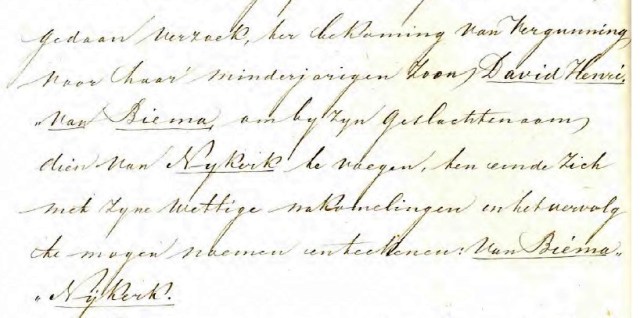 gedaan verzoek, ter bekoming van Vergunning
voor haar minderjarigen zoon, David Henri,
„van Biema, om by zyn Geslachtsnaam
dien van Nykerk te voegen, ten einde zich
met zyne Wettige nakomelingen in het vervolg
te mogen noemen en teekenen: Van Biéma„
„Nÿkerk.